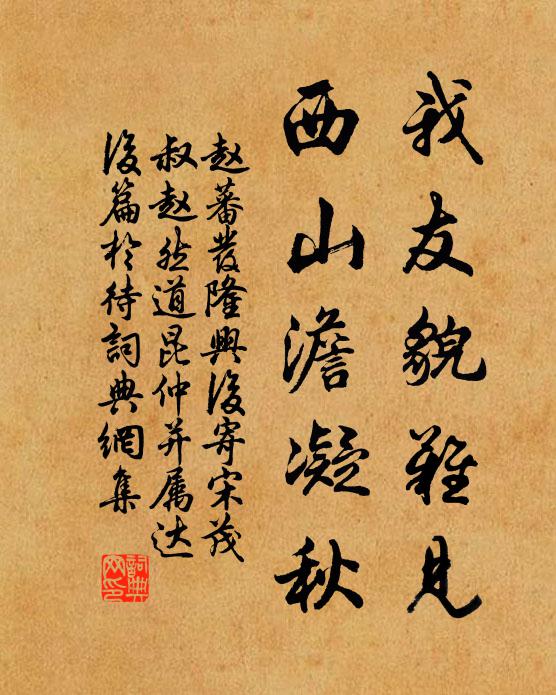 我友貌難見
西山澹凝秋
赵蕃發隆興後寄宋茂
叔赵然道昆仲并属达
後篇於待詞典網集
詞典网印